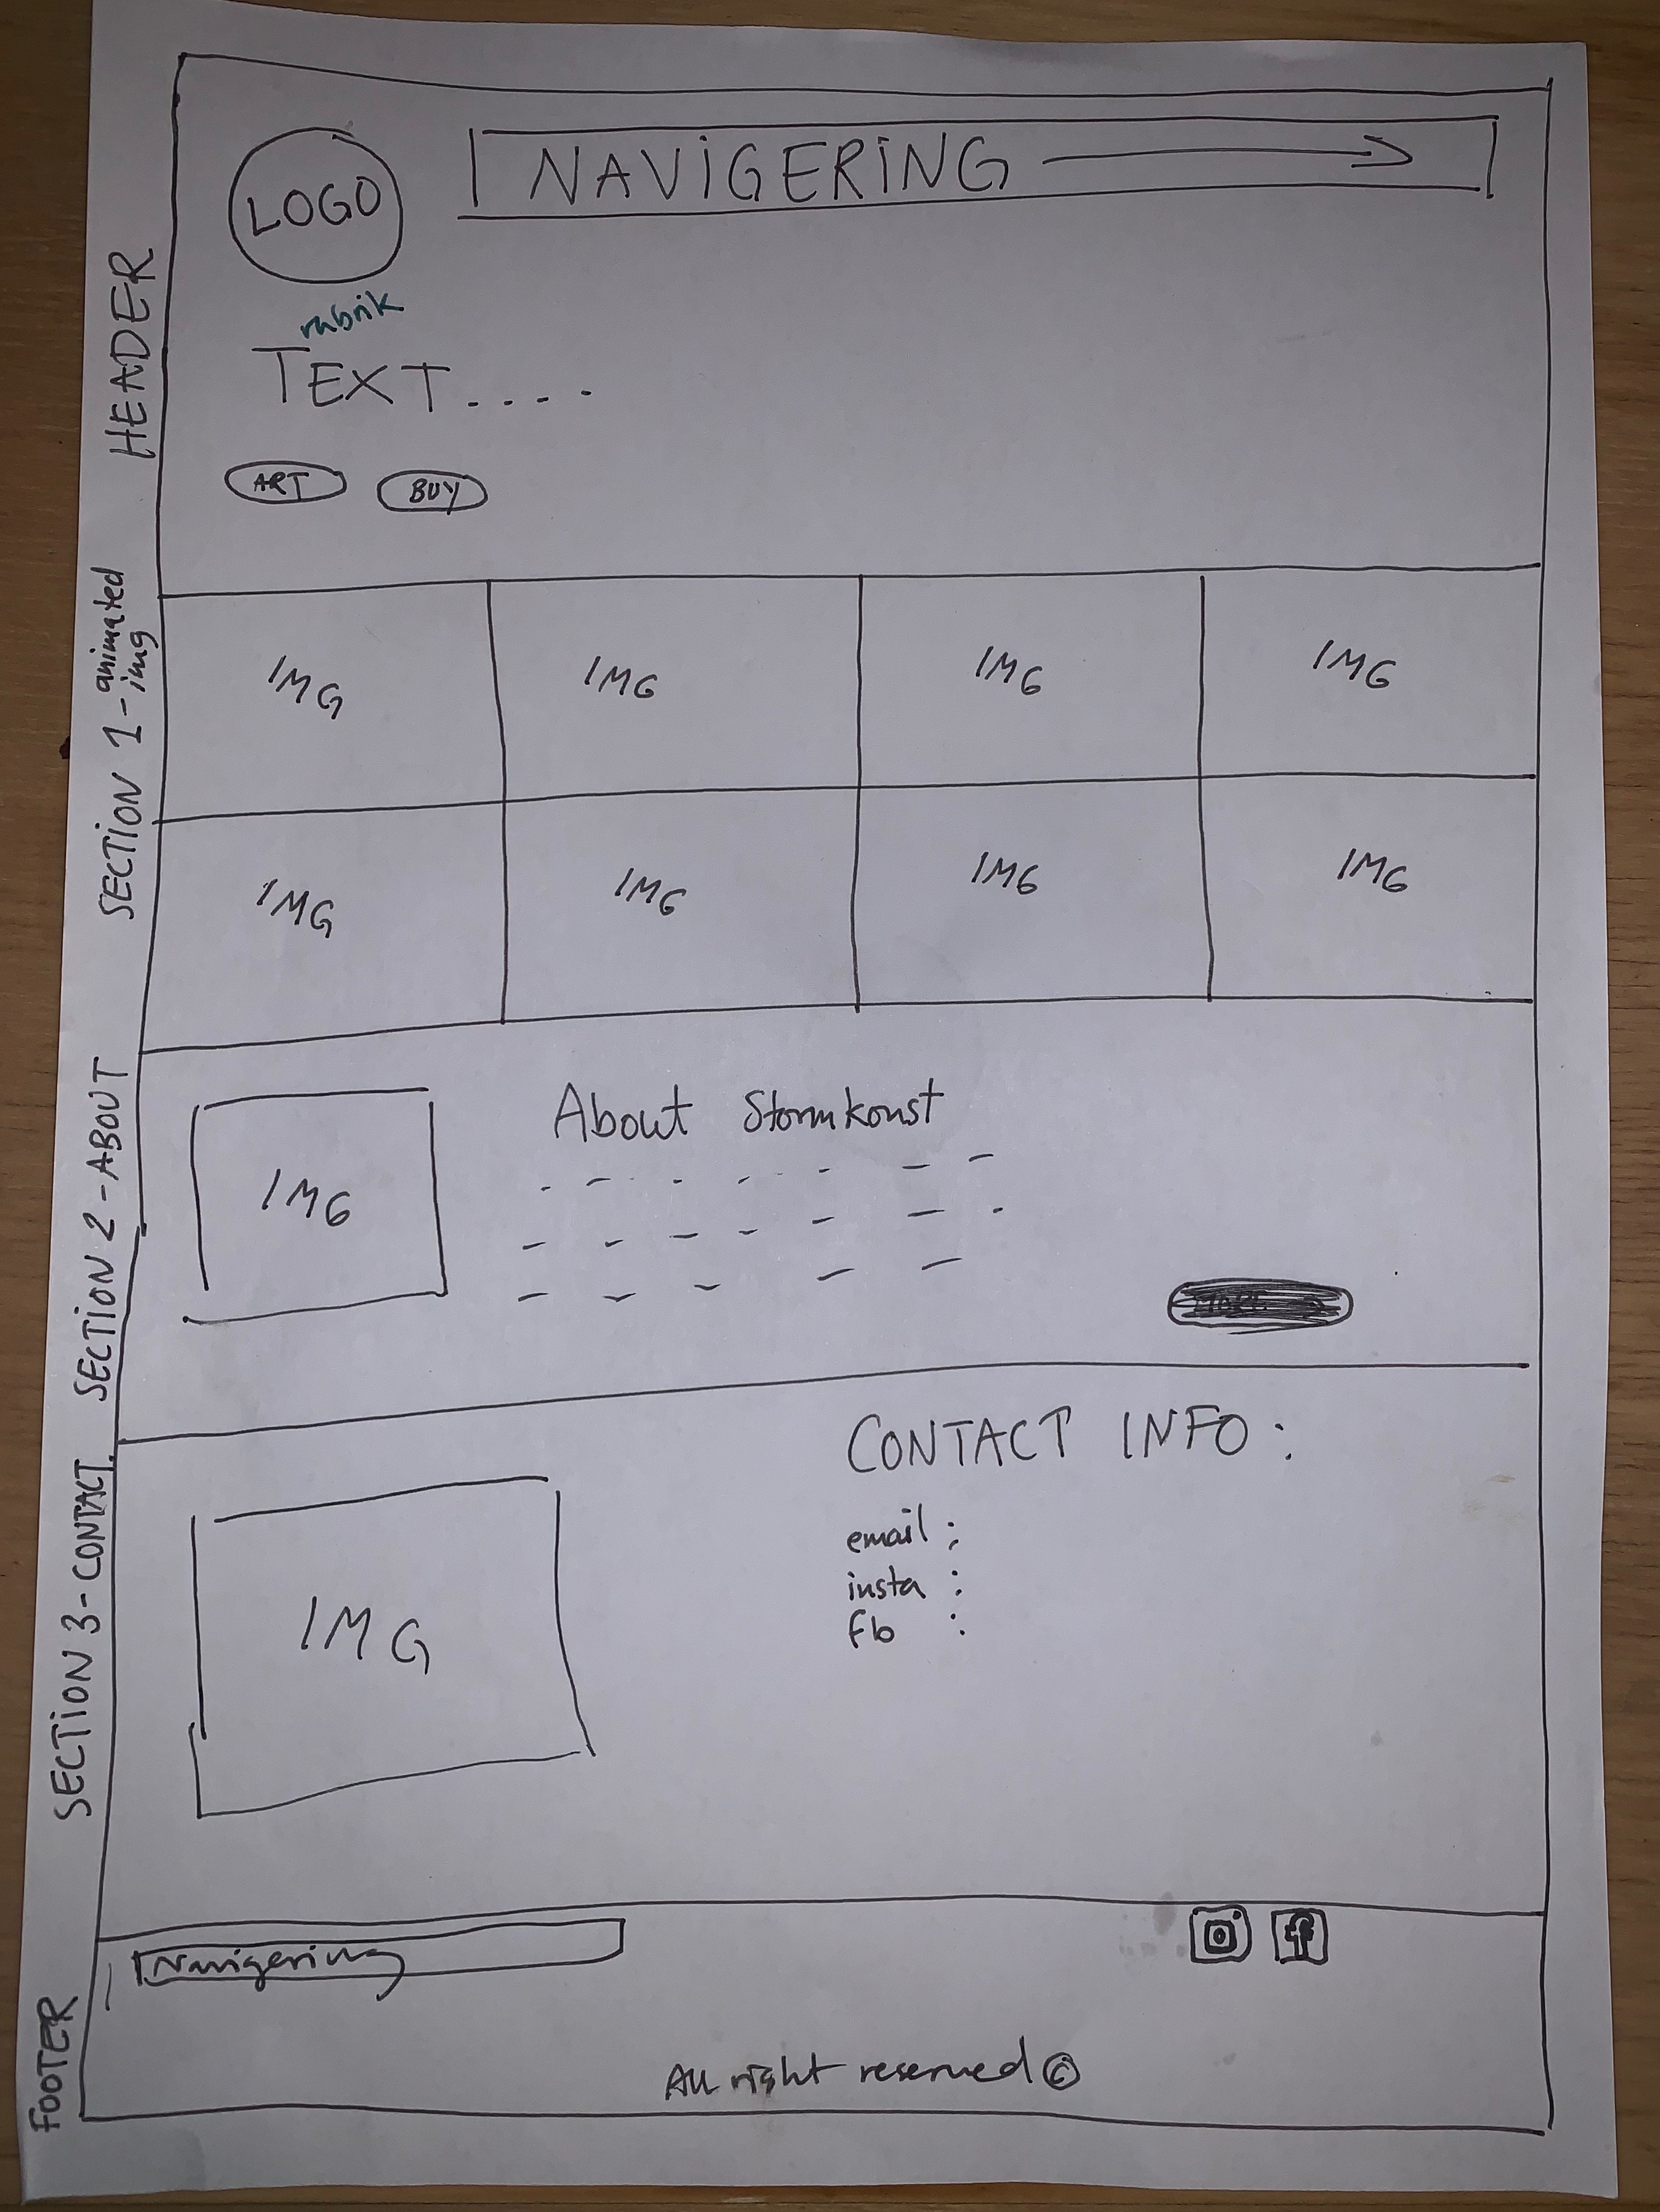 HEADER
LOGO
NAViGERiNG
rubrik
TEXT....
ART
BUY
SECTiON 1 - animated
img
IMG
IMG
IMG
IMG
IMG
IMG
IMG
IMG
SECTiON 2 - ABOUT
IMG
About Stormkonst
SECTiON 3 - CONTACT
IMG
CONTACT INFO :
email :
insta :
fb :
FOOTER
Navigering
f
All right reserved ©